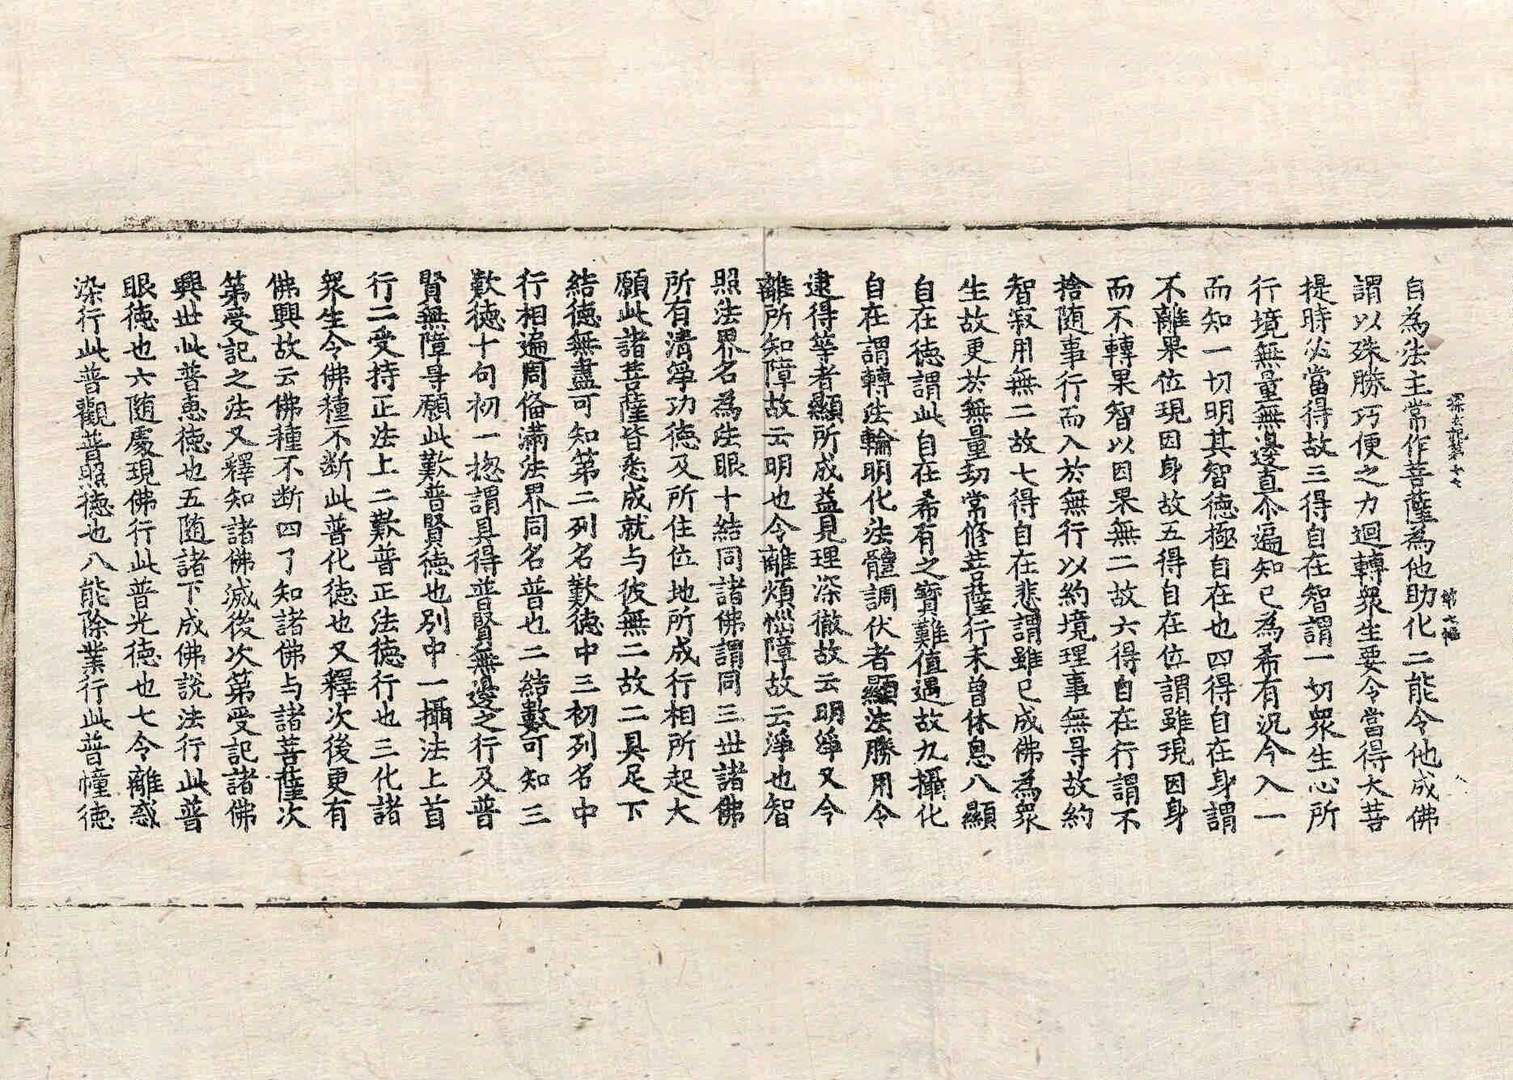 探玄記第十七 第七幅
自為法主常作菩薩為他助化二能令他成佛
謂以殊勝巧便之力迴轉衆生要令當得大菩
提時必當得故三得自在智謂一切衆生心所
行境無量無邊直尒遍知已為希有况今入一
而知一切明其智德極自在也四得自在身謂
不離果位現因身故五得自在位謂雖現因身
而不轉果智以因果無二故六得自在行謂不
捨随事行而入於無行以約境理事無㝵故約
智寂用無二故七得自在悲謂雖已成佛為衆
生故更於無量劫常修菩薩行未曾休息八顯
自在德謂此自在希有之寶難值遇故九攝化
自在謂轉法輪明化法體調伏者顯法勝用令
逮得等者顯所成益見理深徹故云明淨又今
離所知障故云明也令離煩惱障故云淨也智
照法界名為法眼十結同諸佛謂同三世諸佛
所有清淨功德及所住位地所成行相所起大
願此諸菩薩皆悉成就与彼無二故二具足下
結德無盡可知第二列名歎德中三初列名中
行相遍周俻滿法界同名普也二結數可知三
歎德十句初一揔謂具得普賢無邊之行及普
賢無障㝵願此歎普賢德也別中一攝法上首
行二受持正法上二歎普正法德行也三化諸
衆生令佛種不断此普化德也又釋次後更有
佛興故云佛種不断四了知諸佛与諸菩薩次
第受記之法又釋知諸佛滅後次第受記諸佛
興世此普恵德也五随諸下成佛說法行此普
眼德也六随處現佛行此普光德也七令離惑
染行此普觀普照德也八能除業行此普幢德